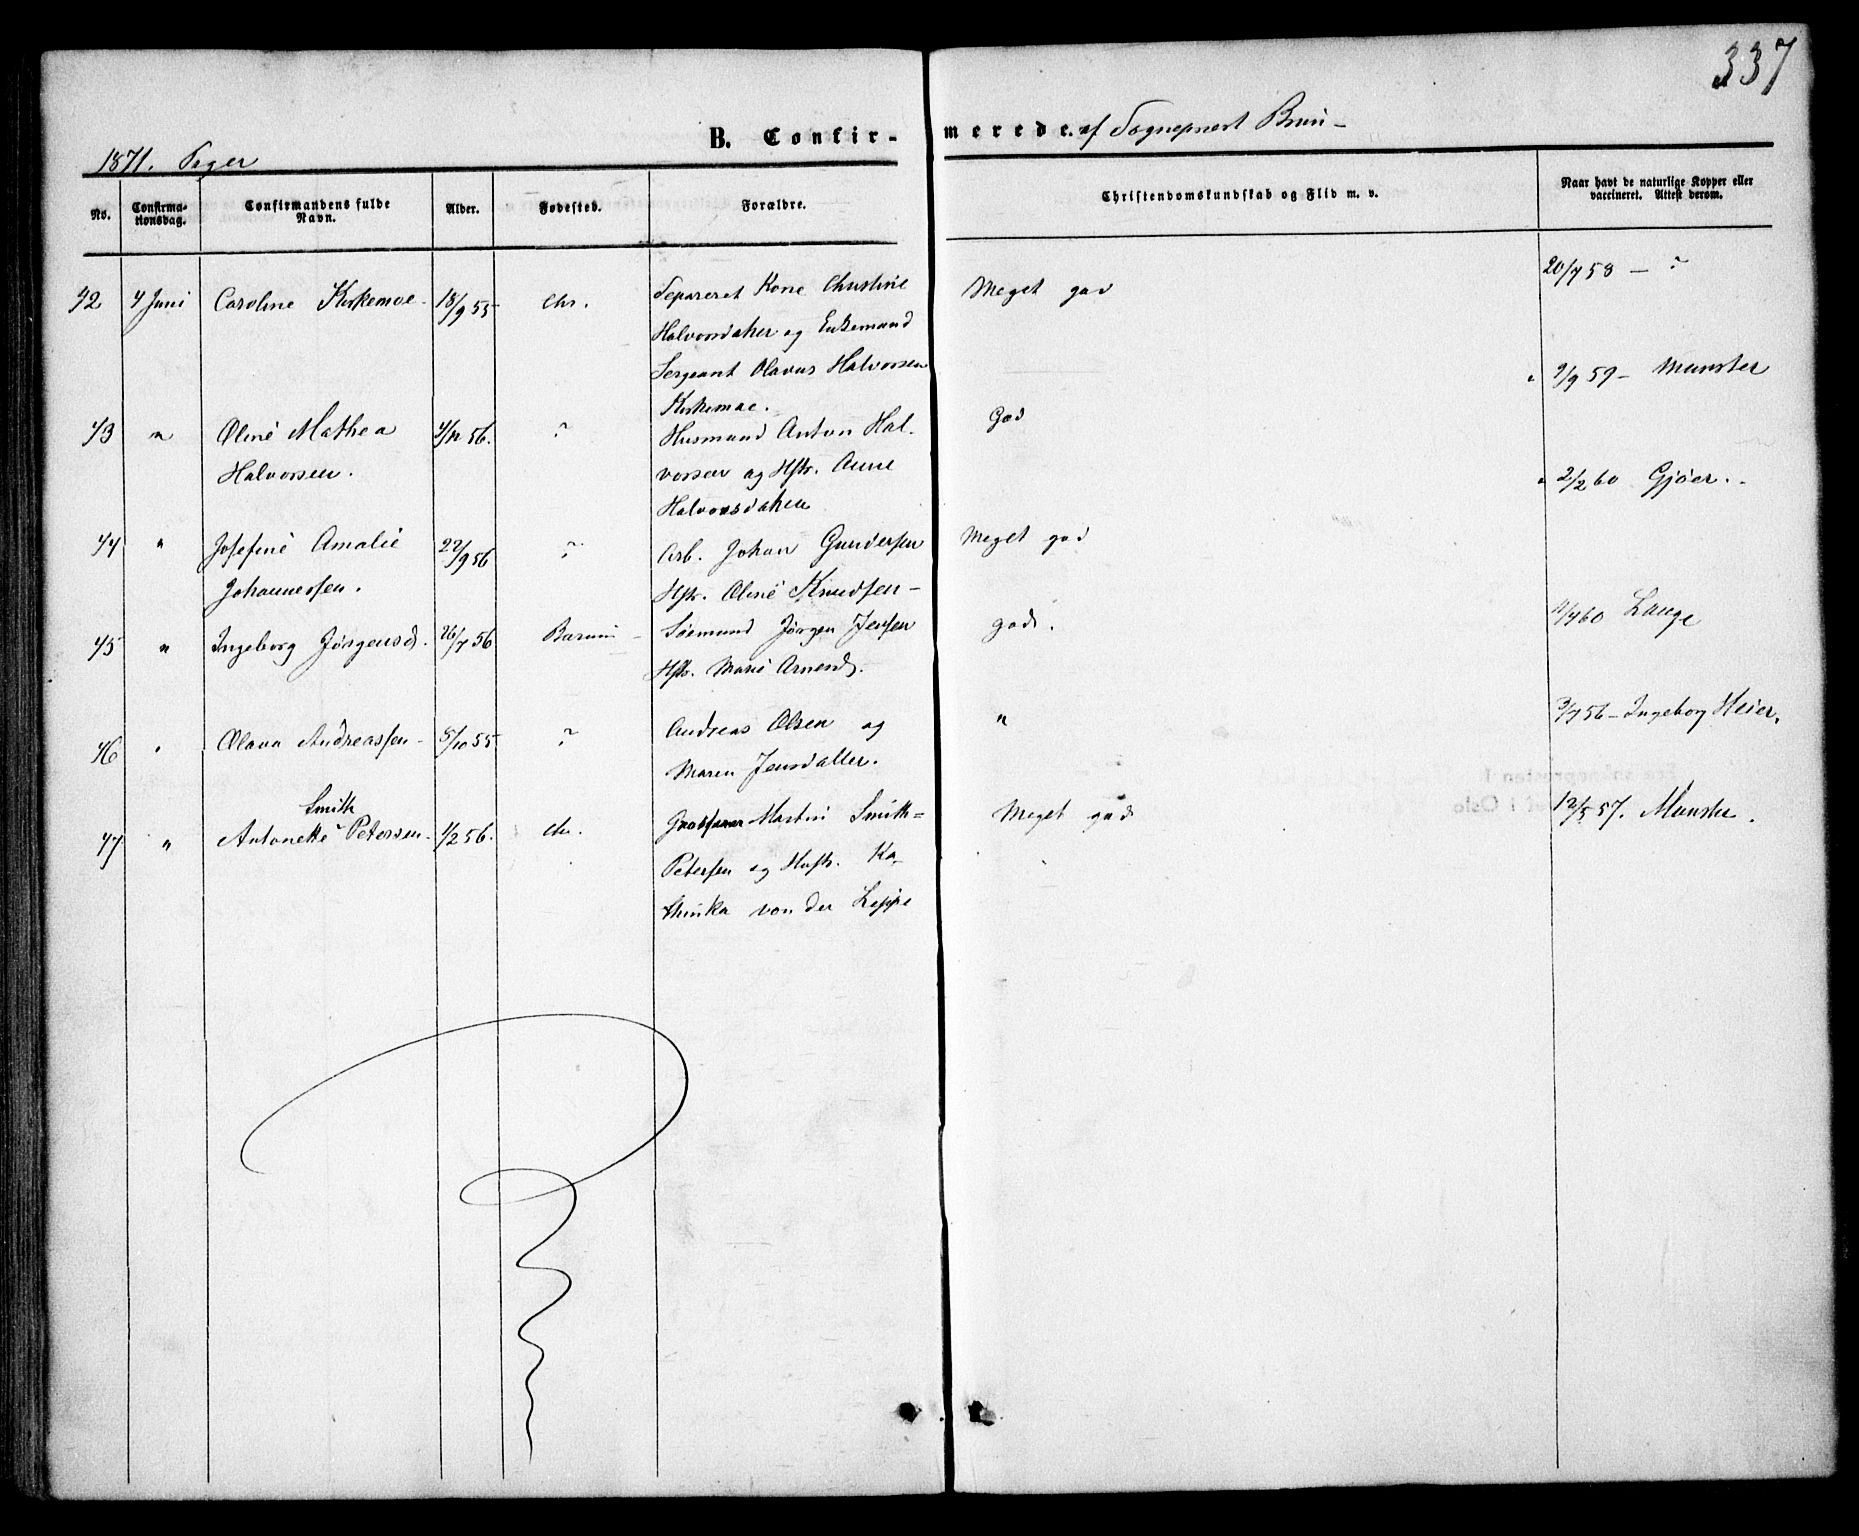 337
B. Confirmerede. af Sognepræst Bruun
1871. Piger
No. Confirmationsdag. Confirmandens fulde Navn. Alder. Fødested. Forældre. Christendomskundskab og Flid m. v. Naar havt de naturlige Kopper eller vaccineret. Attest derom.
42 4 Juni Caroline Kirkemoe 18/9 55 Chr. Separeret Kone Christine Meget god 20/7 58 — ?
Halvorsdatter og Enkemand
Sergeant Olavus Halvorsen
Kirkemoe.
43 " Oline Mathea 4/12 56. ? Husmand Anton Hal- God 9/9 59 — Munster
Halvorsen. vorsen og Hstr. Anne
Halvorsdatter
44 " Josefine Amalie 22/9 56 ? Arb. Johan Gundersen Meget god 2/2 60 Gjøer.
Johannessen. Hstr. Oline Knudsen
45 " Ingeborg Jørgensd. 26/7 56 Bærum Sømand Jørgen Jensen god. 4/7 60 Lange
Hstr. Marie Arnesd.
46 " Olava Andreassen 5/10 55 ? Andreas Olsen og " 3/7 56 — Ingeborg Heier.
Maren Jensdatter.
Smith
47 " Antonette Petersen. 4/2 56. Chr. Martin Smith= Meget god 12/5 57. Munster.
Petersen og Hustr. Ka-
thinka von der Lippe